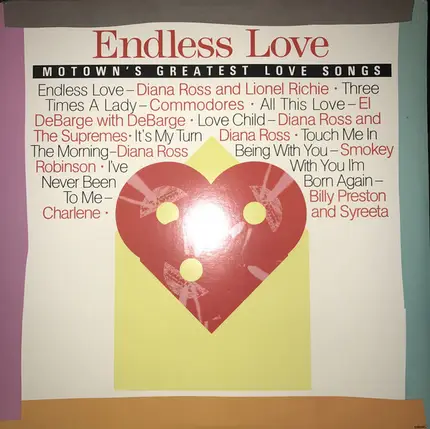 Endless Love
MOTOWN'S GREATEST LOVE SONGS
Endless Love – Diana Ross and Lionel Richie · Three
Times A Lady – Commodores · All This Love – El
DeBarge with DeBarge · Love Child – Diana Ross and
The Supremes · It's My Turn Diana Ross · Touch Me In
The Morning – Diana Ross Being With You – Smokey
Robinson · I've With You I'm
Never Been Born Again –
To Me – Billy Preston
Charlene · and Syreeta